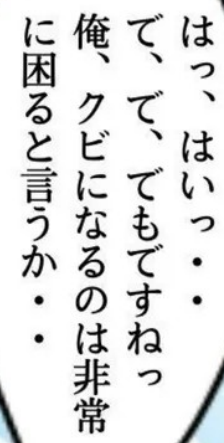 はっ、はいっ・・
で、で、でもですねっ
俺、クビになるのは非常
に困ると言うか・・